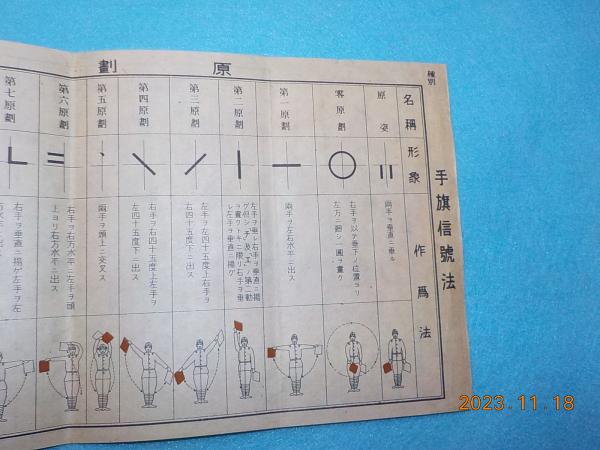 手旗信號法
種別
名稱
形象
作爲法
原劃
原姿
兩手ヲ垂直ニ垂ル
零原劃
右手ヲ以テ垂下ノ位置ヨリ
左方ニ廻シ一圓ヲ畫ク
第一原劃
兩手ヲ左右水平ニ出ス
第二原劃
左手ヲ垂レ右手ヲ垂直ニ揚
レ左手ヲ垂直ニ揚グ
第三原劃
左手ヲ左四十五度上右手ヲ
右四十五度下ニ出ス
第四原劃
右手ヲ右四十五度上左手ヲ
左四十五度下ニ出ス
第五原劃
兩手ヲ頭上ニ交叉ス
第六原劃
右手ヲ右方水平ニ左手ヲ頭
上ヨリ右方水平ニ出ス
第七原劃
右手ヲ垂直ニ揚ゲ左手ヲ左
方水平ニ出ス
2023.11.18